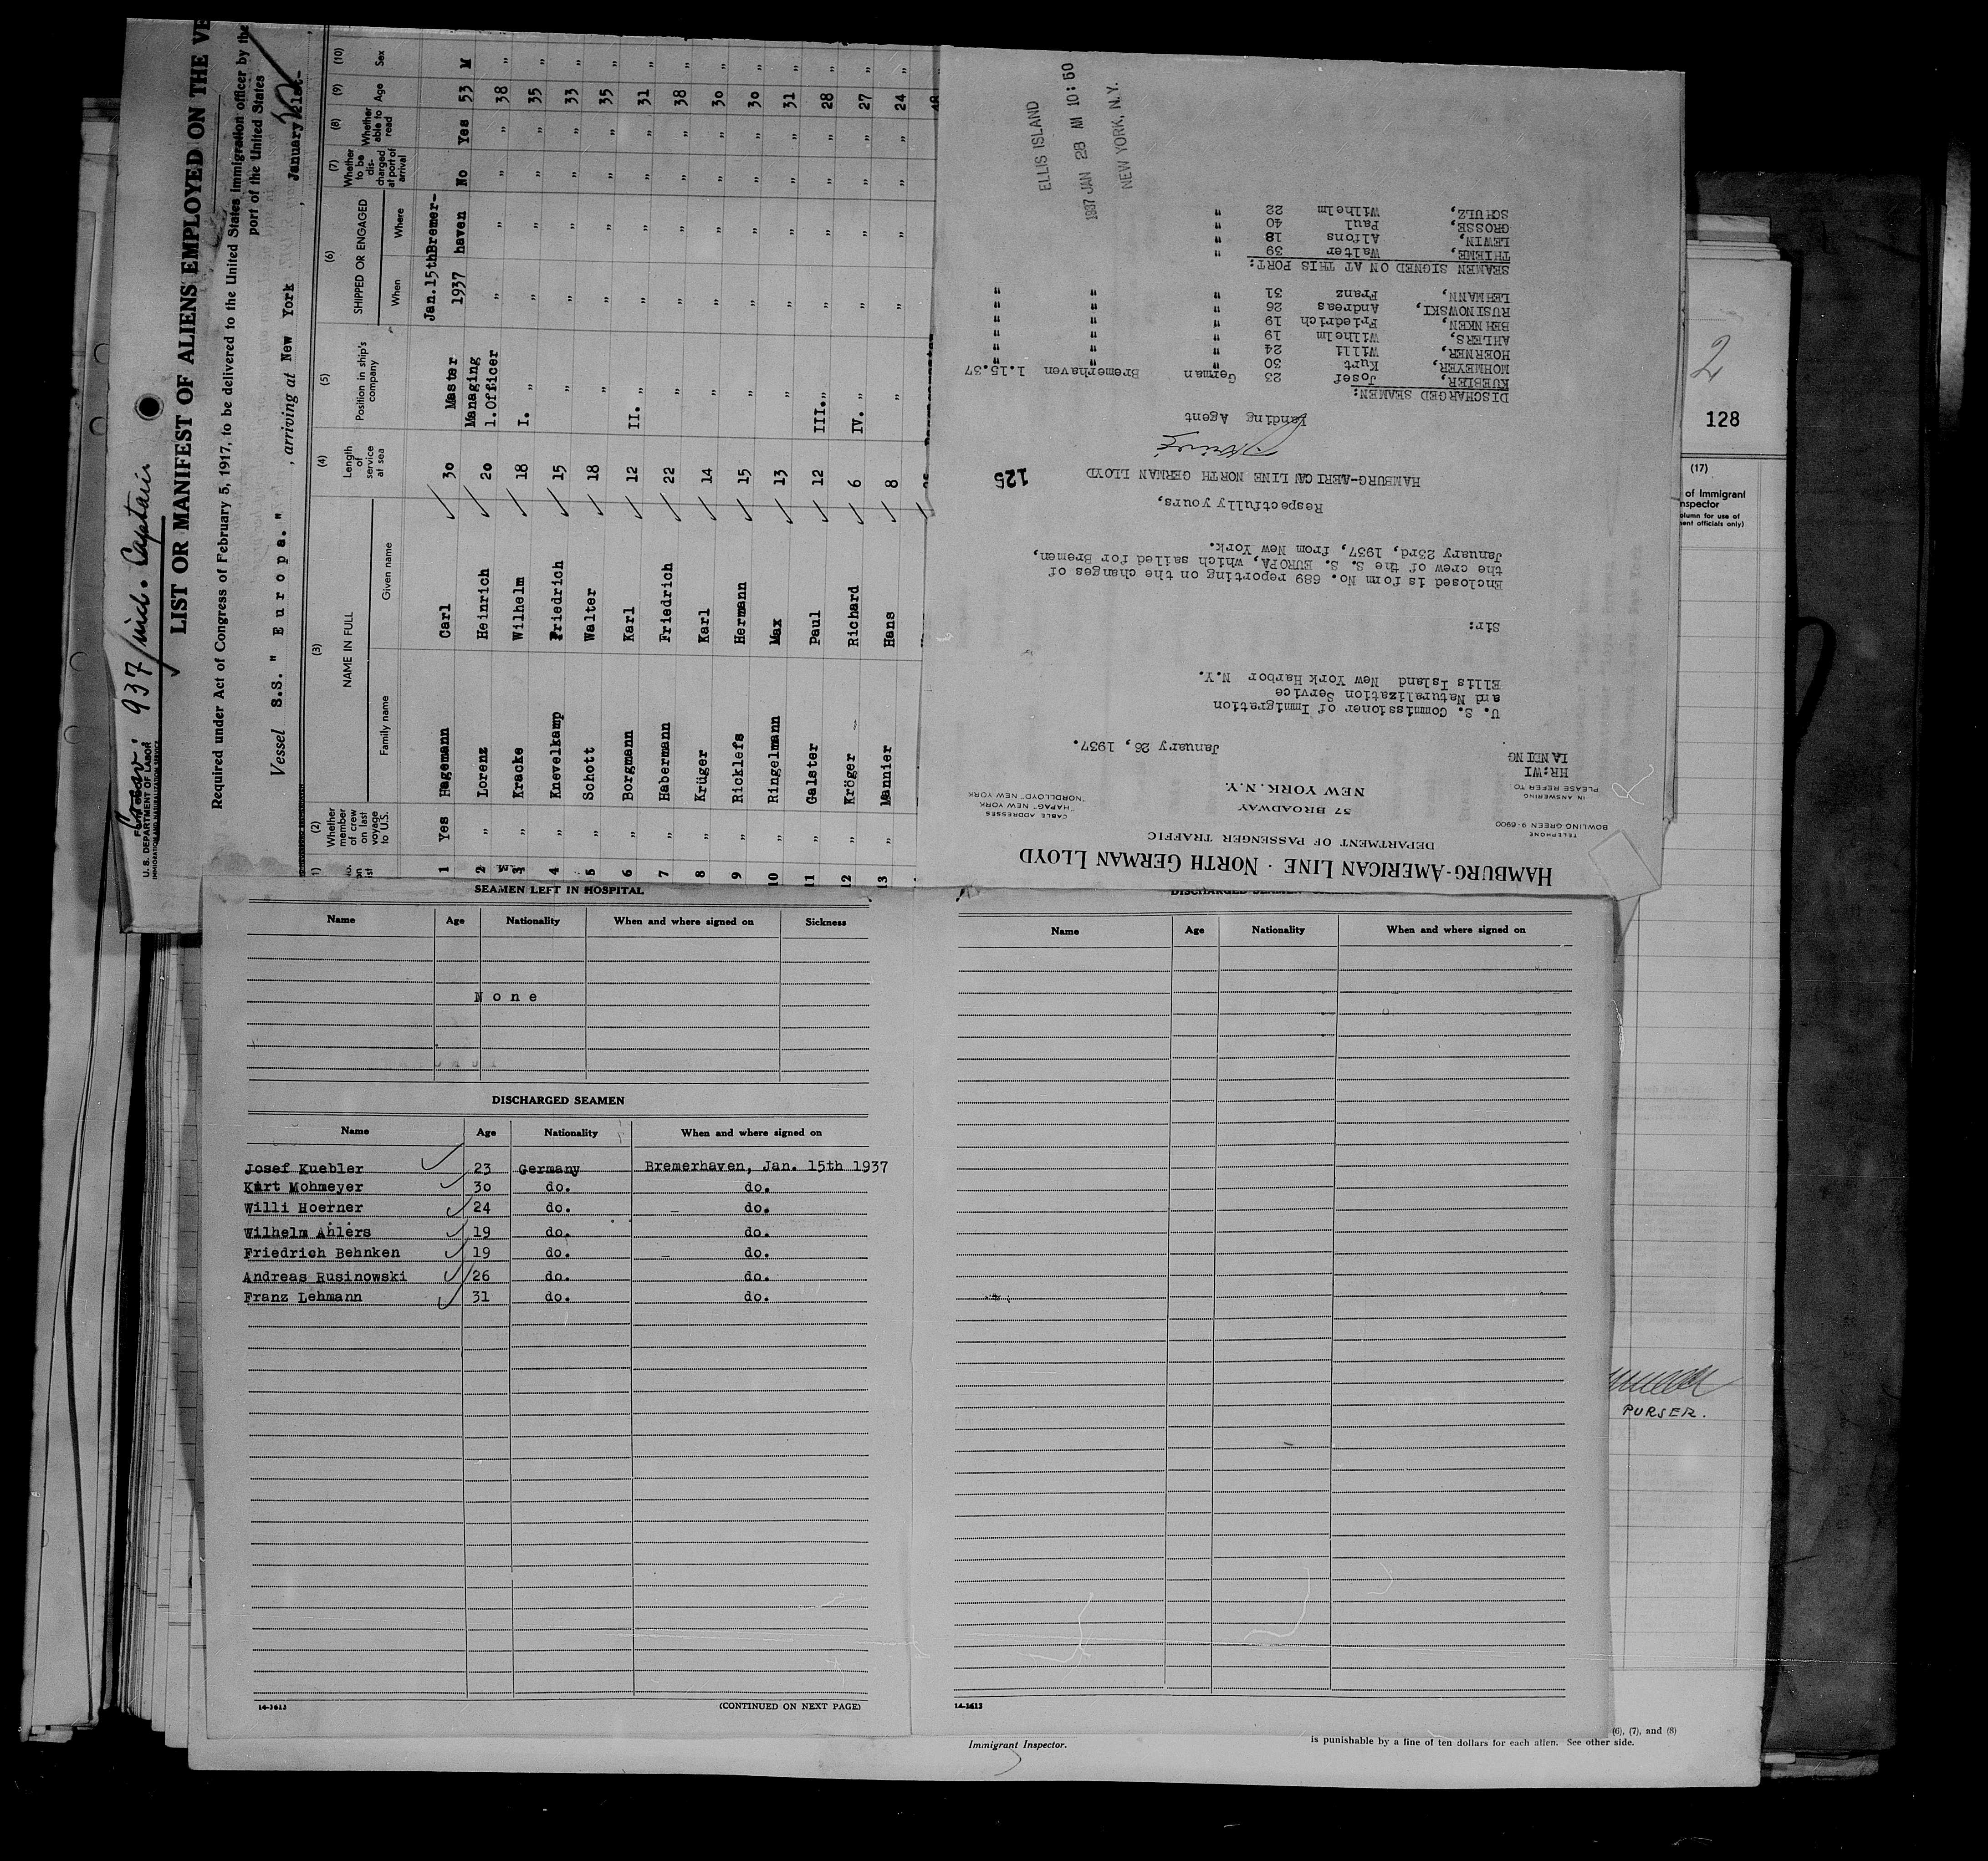 Crew: 937/incl. Captain
U. S. DEPARTMENT OF LABOR
IMMIGRATION AND NATURALIZATION SERVICE
LIST OR MANIFEST OF ALIENS EMPLOYED ON THE VE
Required under Act of Congress of February 5, 1917, to be delivered to the United States immigration officer by the
port of the United States
Vessel S.S. " E u r o p a. " , arriving at New York , January 21st-
(2) (3) (4) (5) (6) (7) (8) (9) (10)
Whether member of crew on last voyage to U.S. NAME IN FULL Length of service at sea Position in ship's company SHIPPED OR ENGAGED Whether to be discharged at port of arrival Whether able to read Age Sex
Family name Given name When Where
1 Yes Hagemann Carl 30 Master Jan.15th 1937 Bremer-haven No Yes 53 M
2 " Lorenz Heinrich 20 Managing 1.Officer " " " " 38 "
3 " Kracke Wilhelm 18 I. " " " " " 35 "
4 " Knevelkamp Friedrich 15 " " " " " 33 "
5 " Schott Walter 18 " " " " " 35 "
6 " Borgmann Karl 12 II. " " " " " 31 "
7 " Habermann Friedrich 22 " " " " " 38 "
8 " Krüger Karl 14 " " " " " 30 "
9 " Ricklefs Hermann 15 " " " " " 30 "
10 " Ringelmann Max 13 " " " " " 31 "
11 " Galster Paul 12 III. " " " " " 28 "
12 " Kröger Richard 6 IV. " " " " " 27 "
13 " Mannier Hans 8 " " " " " 24 "
HAMBURG-AMERICAN LINE · NORTH GERMAN LLOYD
DEPARTMENT OF PASSENGER TRAFFIC
57 BROADWAY
NEW YORK, N.Y.
TELEPHONE
BOWLING GREEN 9-6900
IN ANSWERING
PLEASE REFER TO
HR:WI
LANDING
CABLE ADDRESSES
"HAPAG" NEW YORK
"NORDLLOYD" NEW YORK
January 26, 1937.
U. S. Commissioner of Immigration
and Naturalization Service
Ellis Island New York Harbor N.Y.
Sir:
Enclosed is form No. 689 reporting on the changes of
the crew of the S. S. EUROPA, which sailed for Bremen,
January 23rd, 1937, from New York.
Respectfully yours,
HAMBURG-AERICAN LINE NORTH GERMAN LLOYD
125
Landing Agent
DISCHARGED SEAMEN:
KUEBIER, Josef 23 German Bremerhaven 1.15.37
MOHMEYER, Kurt 30 " " "
HOERNER, Willi 24 " " "
AHLERS, Wilhelm 19 " " "
BEHNKEN, Friedrich 19 " " "
RUSINOWSKI, Andreas 26 " " "
LEHMANN, Franz 31 " " "
SEAMEN SIGNED ON AT THIS PORT:
THIEME, Walter 39 "
LEWIN, Alfons 18 "
GROSSE, Paul 40 "
SCHULZ, Wilhelm 22 "
ELLIS ISLAND
1937 JAN 28 AM 10:50
NEW YORK, N.Y.
2
128
(17)
of Immigrant
nspector
olumn for use of
ent officials only)
PURSER.
SEAMEN LEFT IN HOSPITAL
Name Age Nationality When and where signed on Sickness
N o n e
DISCHARGED SEAMEN
Name Age Nationality When and where signed on
Josef Kuebler 23 Germany Bremerhaven, Jan. 15th 1937
Kurt Mohmeyer 30 do. do.
Willi Hoerner 24 do. do.
Wilhelm Ahlers 19 do. do.
Friedrich Behnken 19 do. do.
Andreas Rusinowski 26 do. do.
Franz Lehmann 31 do. do.
14-1613 (CONTINUED ON NEXT PAGE)
Name Age Nationality When and where signed on
14-1613
Immigrant Inspector.
(6), (7), and (8)
is punishable by a fine of ten dollars for each alien. See other side.